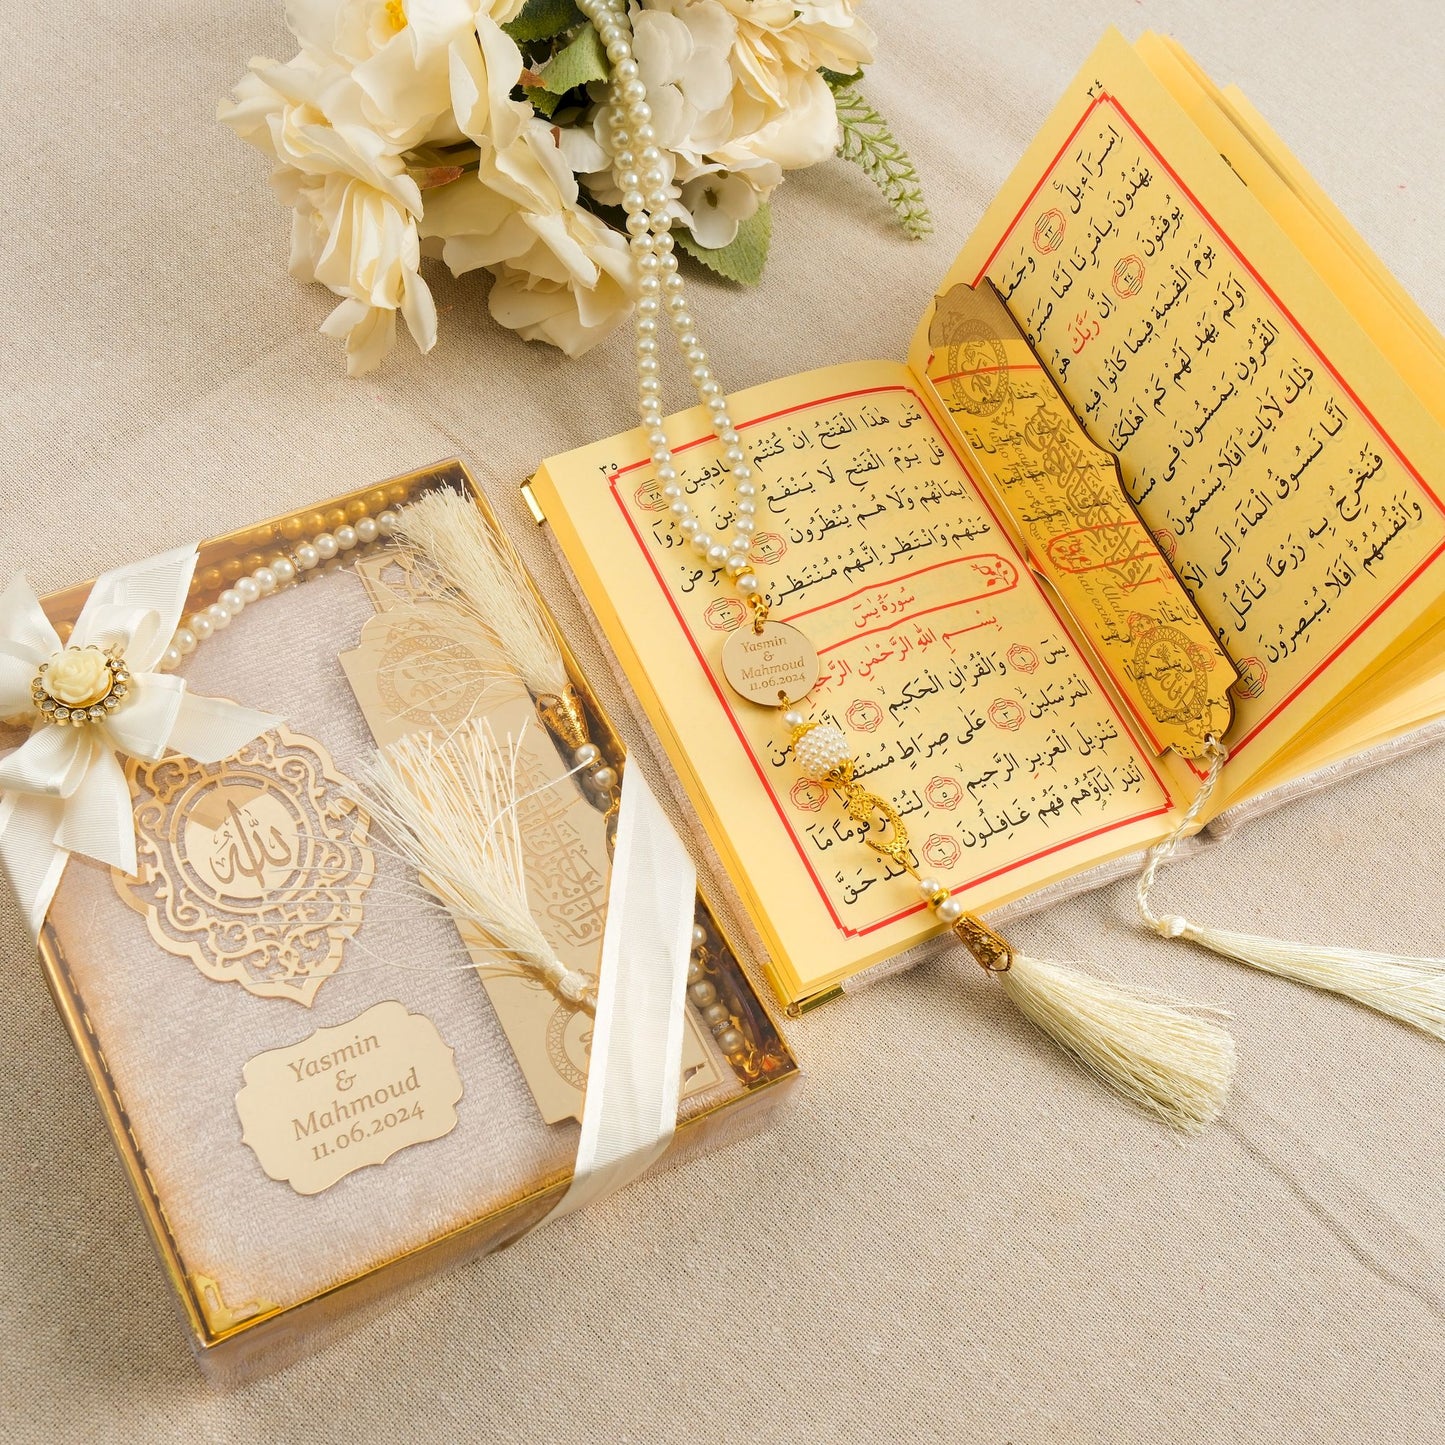 Yasmin
&
Mahmoud
11.06.2024
الله
٣٥
مَتٰى هٰذَا الْفَتْحُ اِنْ كُنْتُمْ
٢٨
قُلْ يَوْمَ الْفَتْحِ لَا يَنْفَعُ
اِيمَانُهُمْ وَلَا هُمْ يُنْظَرُونَ ٢٩
عَنْهُمْ وَانْتَظِرْ اِنَّهُمْ مُنْتَظِرُونَ ٣٠
سُورَةُ يٰسٓ
بِسْمِ اللّٰهِ الرَّحْمٰنِ الرَّحِيمِ
يٰسٓ ١ وَالْقُرْاٰنِ الْحَكِيمِ ٢
الْمُرْسَلِينَ ٣ عَلٰى صِرَاطٍ مُسْتَقِيمٍ ٤
تَنْزِيلَ الْعَزِيزِ الرَّحِيمِ ٥ لِتُنْذِرَ قَوْمًا مَٓا
اُنْذِرَ اٰبَٓاؤُهُمْ فَهُمْ غَافِلُونَ ٦ لَقَدْ حَقَّ
Yasmin
&
Mahmoud
11.06.2024
٣٤
اِسْرَٓاء۪يلَ ٢٣ وَجَعَلْنَا
يَهْدُونَ بِاَمْرِنَا لَمَّا صَبَرُوا
يُوقِنُونَ ٢٤ اِنَّ رَبَّكَ هُوَ
يَوْمَ الْقِيٰمَةِ فِيمَا كَانُوا فِيهِ
اَوَلَمْ يَهْدِ لَهُمْ كَمْ اَهْلَكْنَا
الْقُرُونِ يَمْشُونَ فِي
ذٰلِكَ لَاٰيَاتٍ اَفَلَا يَسْمَعُونَ
اَنَّا نَسُوقُ الْمَٓاءَ اِلَى
فَنُخْرِجُ بِهِ زَرْعًا تَأْكُلُ
وَاَنْفُسُهُمْ اَفَلَا يُبْصِرُونَ ٢٧